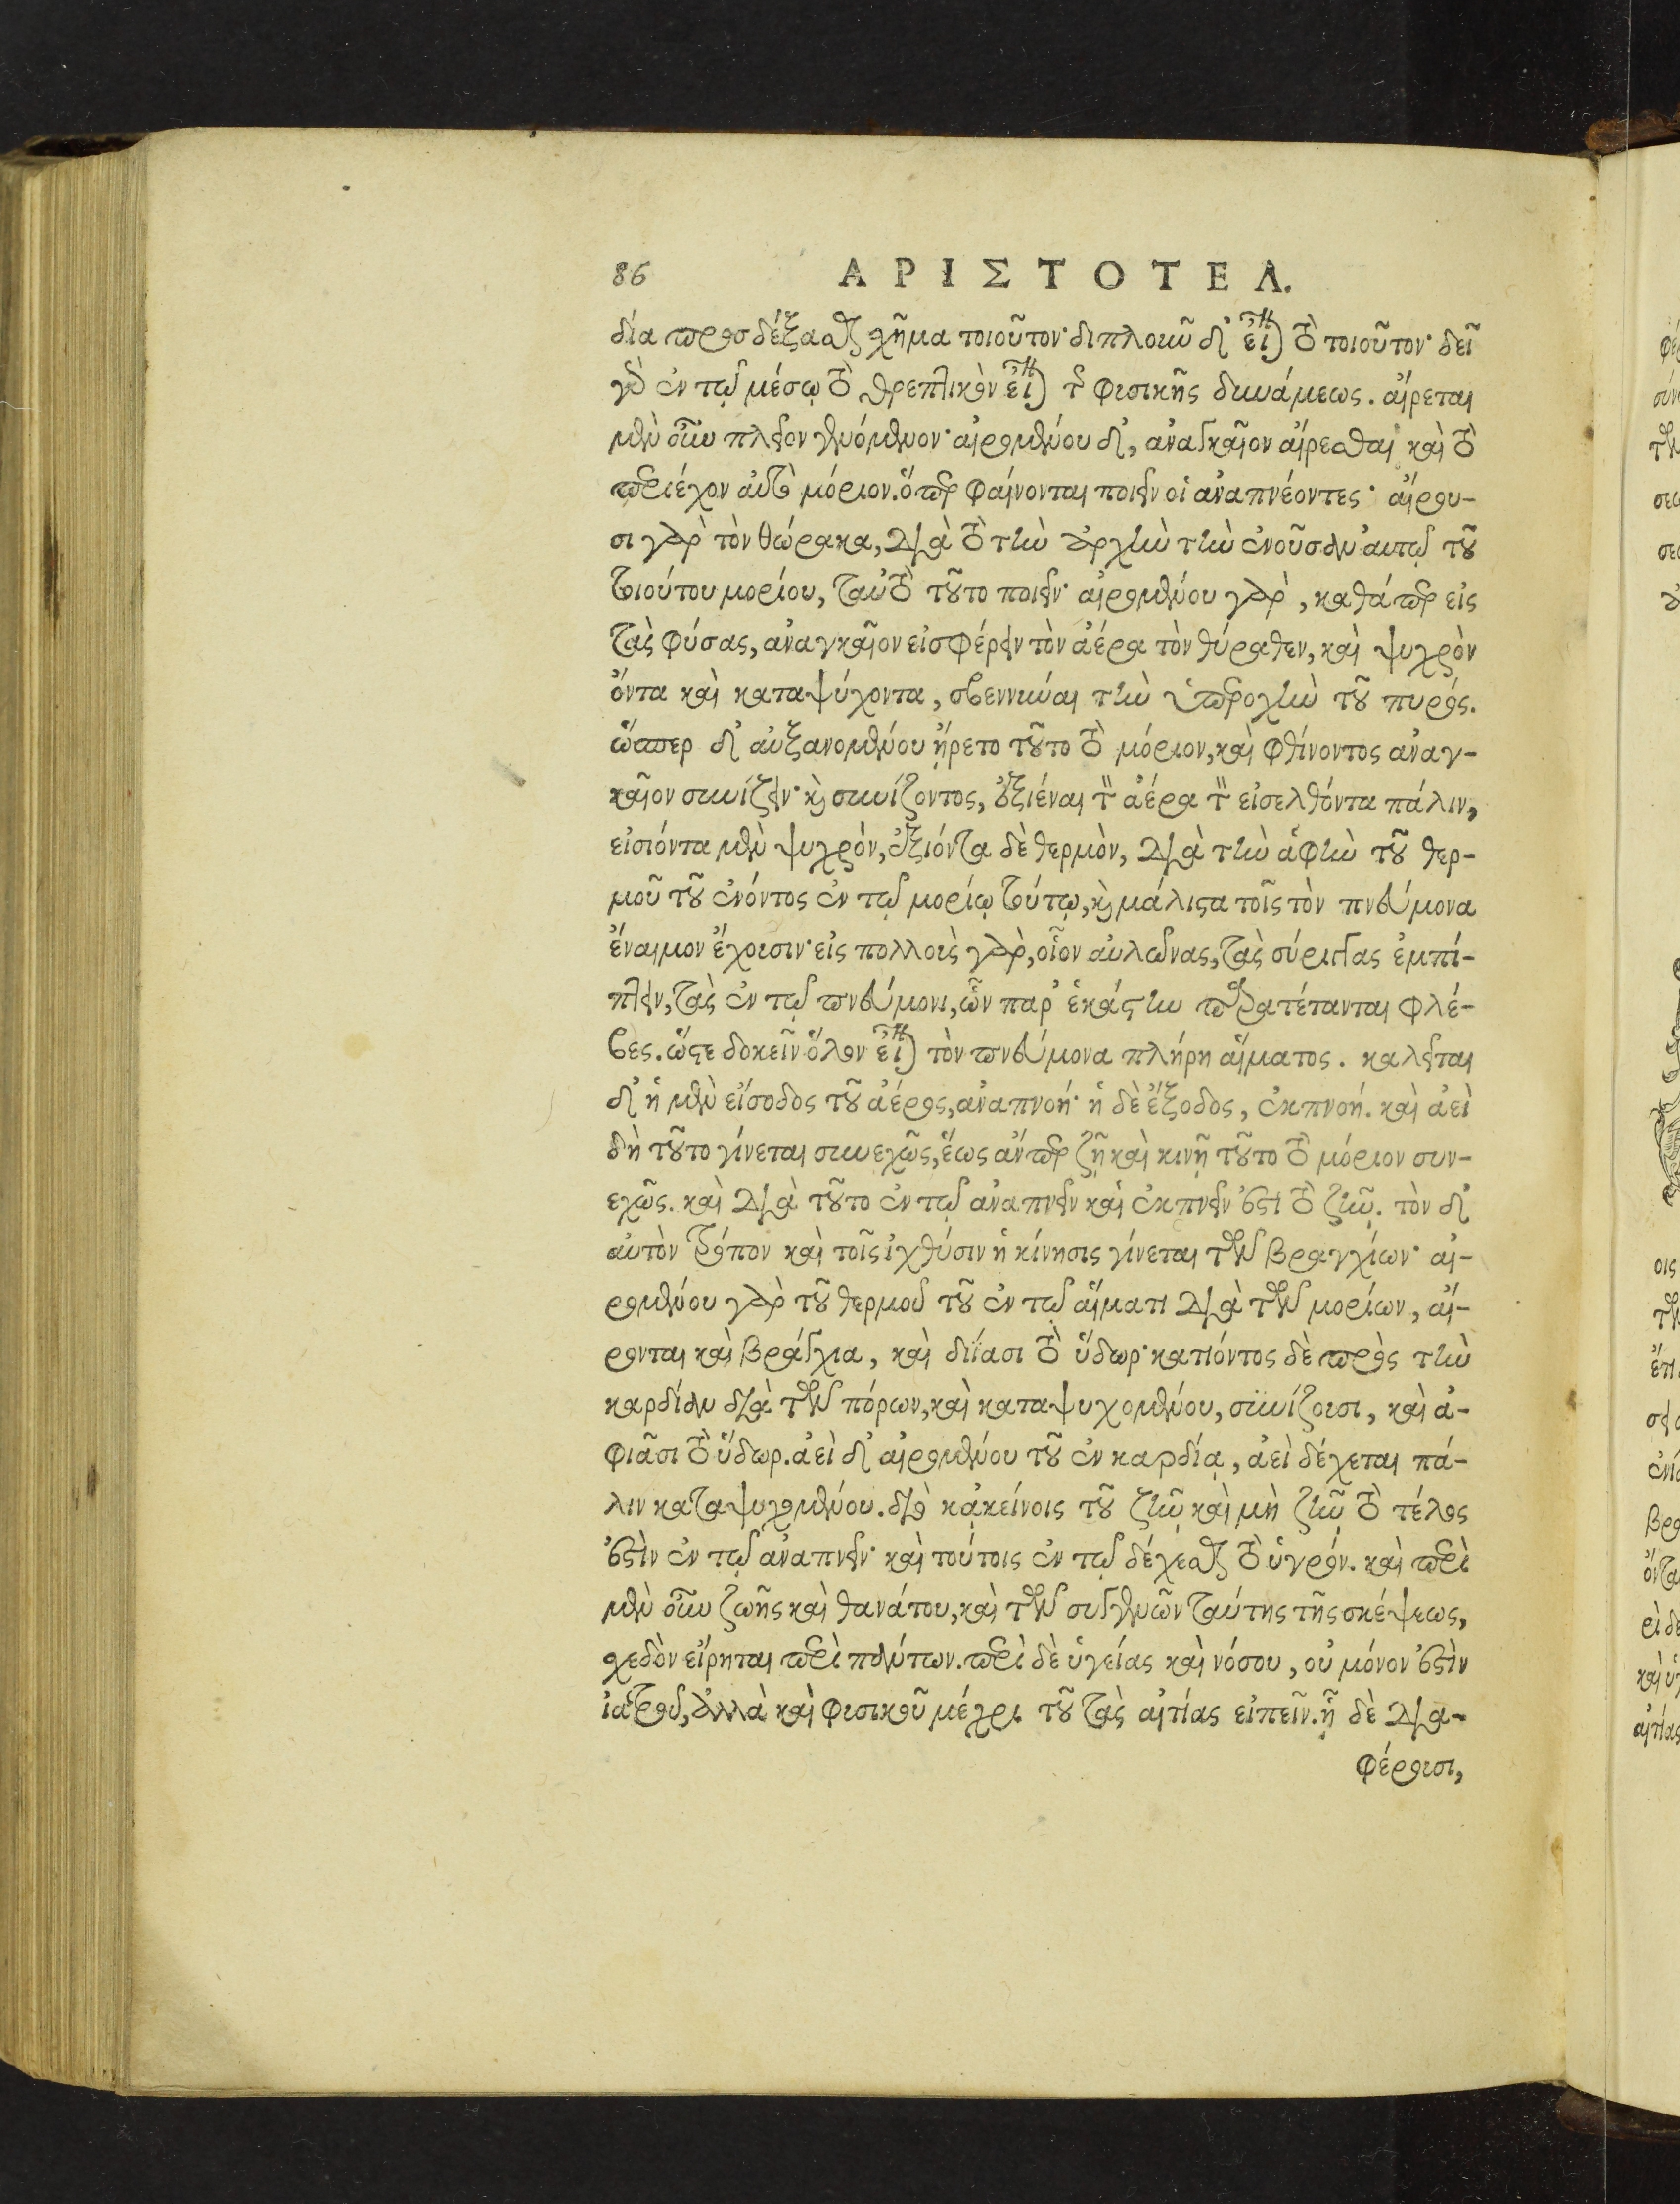 86 ΑΡΙΣΤΟΤΕΛ.
δία προσδέξασθαι σχῆμα τοιοῦτον· διπλοῦν δ' εἶναι τὸ τοιοῦτον· δεῖ
γὸ ἐν τῷ μέσῳ τὸ θρεπτικὸν εἶναι τῆς φυσικῆς δυνάμεως. αἴρεται
μὲν οὖν πλεῖον γενόμενον· αἰρομένου δ', ἀναγκαῖον αἴρεσθαι καὶ τὸ
περιέχον αὐτὸ μόριον. ὅπερ φαίνονται ποιεῖν οἱ ἀναπνέοντες· αἴρου-
σι γὰρ τὸν θώρακα, διὰ τὸ τὴν ἀρχὴν τὴν ἐνοῦσαν αὐτῷ τοῦ
τοιούτου μορίου, ταὐτὸ τοῦτο ποιεῖν· αἰρομένου γὰρ, καθάπερ εἰς
τὰς φύσας, ἀναγκαῖον εἰσφέρειν τὸν ἀέρα τὸν θύραθεν, καὶ ψυχρὸν
ὄντα καὶ καταψύχοντα, σβεννύναι τὴν ὑπεροχὴν τοῦ πυρός.
ὥσπερ δ' αὐξανομένου ᾔρετο τοῦτο τὸ μόριον, καὶ φθίνοντος ἀναγ-
καῖον συνίζειν· καὶ συνίζοντος, ἐξιέναι τὸν ἀέρα τὸν εἰσελθόντα πάλιν,
εἰσιόντα μὲν ψυχρὸν, ἐξιόντα δὲ θερμὸν, διὰ τὴν ἁφὴν τοῦ θερ-
μοῦ τοῦ ἐνόντος ἐν τῷ μορίῳ τούτῳ, καὶ μάλιστα τοῖς τὸν πνεύμονα
ἔναιμον ἔχουσιν· εἰς πολλοὺς γὰρ, οἷον αὐλῶνας, τὰς σύριγγας ἐμπί-
πτειν, τὰς ἐν τῷ πνεύμονι, ὧν παρ' ἑκάστην παρατέτανται φλέ-
βες. ὥστε δοκεῖν ὅλον εἶναι τὸν πνεύμονα πλήρη αἵματος. καλεῖται
δ' ἡ μὲν εἴσοδος τοῦ ἀέρος, ἀναπνοή· ἡ δὲ ἔξοδος, ἐκπνοή. καὶ ἀεὶ
δὴ τοῦτο γίνεται συνεχῶς, ἕως ἄνπερ ζῇ καὶ κινῇ τοῦτο τὸ μόριον συν-
εχῶς. καὶ διὰ τοῦτο ἐν τῷ ἀναπνεῖν καὶ ἐκπνεῖν ἐστι τὸ ζῆν. τὸν δ'
αὐτὸν τρόπον καὶ τοῖς ἰχθύσιν ἡ κίνησις γίνεται τῶν βραγχίων· αἰ-
ρομένου γὰρ τοῦ θερμοῦ τοῦ ἐν τῷ αἵματι διὰ τῶν μορίων, αἴ-
ρονται καὶ βράγχια, καὶ διΐασι τὸ ὕδωρ· κατιόντος δὲ πρὸς τὴν
καρδίαν διὰ τῶν πόρων, καὶ καταψυχομένου, συνίζουσι, καὶ ἀ-
φιᾶσι τὸ ὕδωρ. ἀεὶ δ' αἰρομένου τοῦ ἐν καρδίᾳ, ἀεὶ δέχεται πά-
λιν καταψυχομένου. διὸ κᾀκείνοις τοῦ ζῆν καὶ μὴ ζῆν τὸ τέλος
ἐστὶν ἐν τῷ ἀναπνεῖν· καὶ τούτοις ἐν τῷ δέχεσθαι τὸ ὑγρόν. καὶ περὶ
μὲν οὖν ζωῆς καὶ θανάτου, καὶ τῶν συγγενῶν ταύτης τῆς σκέψεως,
σχεδὸν εἴρηται περὶ πάντων. περὶ δὲ ὑγείας καὶ νόσου, οὐ μόνον ἐστὶν
ἰατροῦ, ἀλλὰ καὶ φυσικοῦ μέχρι τοῦ τὰς αἰτίας εἰπεῖν. ᾗ δὲ δια-
φέρουσι,